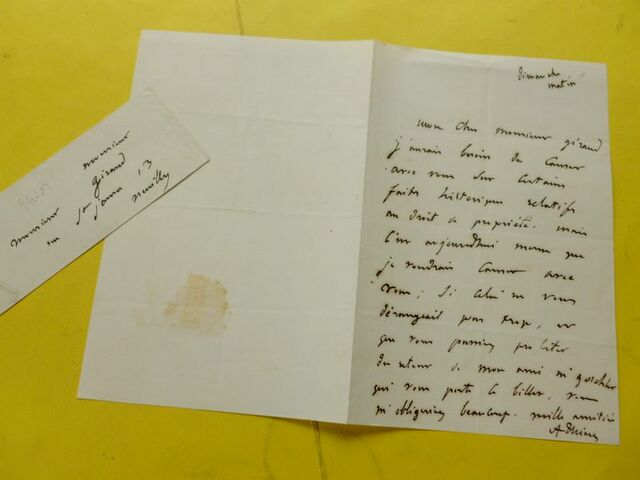 dimanche
matin
mon cher monsieur giraud
j'aurais besoin de causer
avec vous sur certains
faits historiques relatifs
au droit de propriété. mais
c'est aujourdhui meme que
je voudrais causer avec
vous; si cela ne vous
dérangeait pas trop, et
que vous puissiez profiter
du retour de mon ami mr
qui vous porte ce billet, vous
m'obligeriez beaucoup. mille amitiés
A Thiers
Thiers
monsieur
monsieur Giraud
rue St 13
neuilly